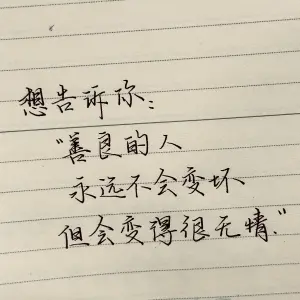 想告诉你:
"善良的人
永远不会变坏
但会变得很无情."